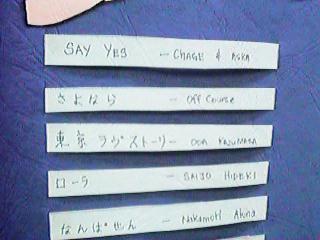 SAY YES — CHAGE & ASKA
さよなら — Off Course
東京ラヴストーリー — ODA KAZUMASA
ローラ — SAIJO HIDEKI
なんぱせん — Nakamori Akina